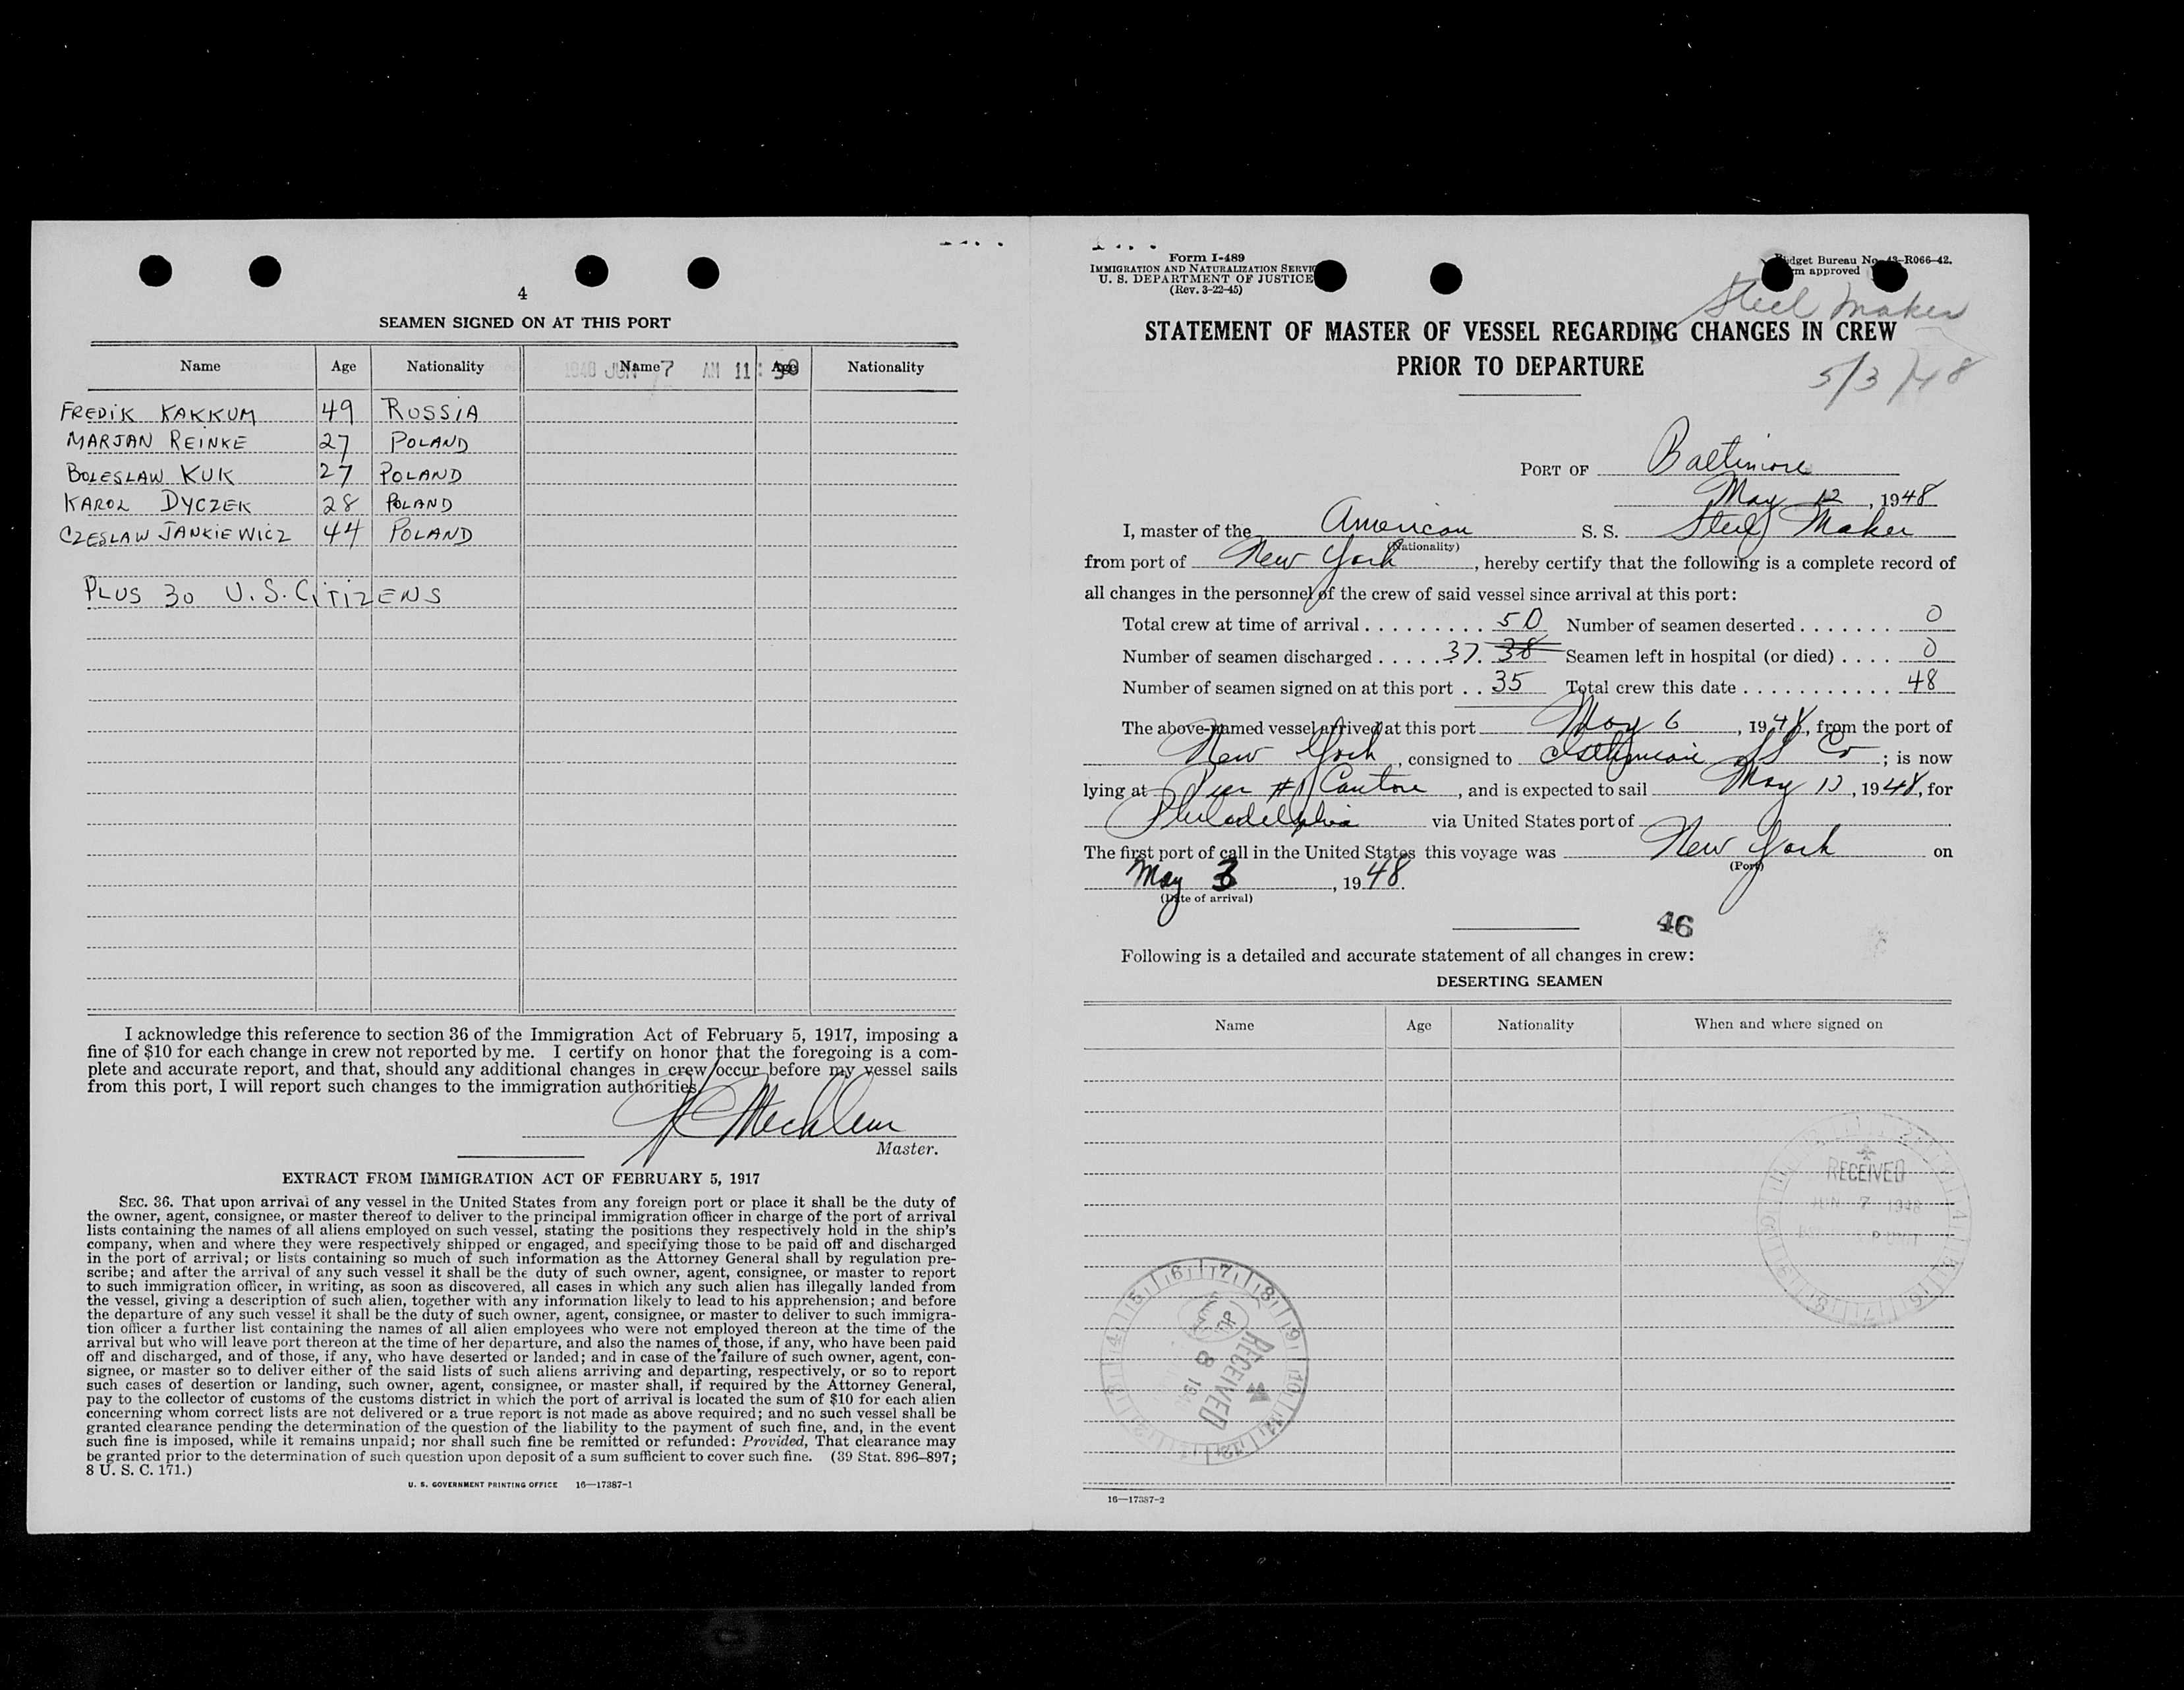 4
SEAMEN SIGNED ON AT THIS PORT
Name Age Nationality Name Age Nationality
1948 JUN 7 AM 11:50
FREDIK KAKKUM 49 RUSSIA
MARJAN REINKE 27 POLAND
BOLESLAW KUK 27 POLAND
KAROL DYCZEK 28 POLAND
CZESLAW JANKIEWICZ 44 POLAND
PLUS 30 U.S. CITIZENS
I acknowledge this reference to section 36 of the Immigration Act of February 5, 1917, imposing a
fine of $10 for each change in crew not reported by me. I certify on honor that the foregoing is a com-
plete and accurate report, and that, should any additional changes in crew occur before my vessel sails
from this port, I will report such changes to the immigration authorities.
Master.
EXTRACT FROM IMMIGRATION ACT OF FEBRUARY 5, 1917
SEC. 36. That upon arrival of any vessel in the United States from any foreign port or place it shall be the duty of
the owner, agent, consignee, or master thereof to deliver to the principal immigration officer in charge of the port of arrival
lists containing the names of all aliens employed on such vessel, stating the positions they respectively hold in the ship's
company, when and where they were respectively shipped or engaged, and specifying those to be paid off and discharged
in the port of arrival; or lists containing so much of such information as the Attorney General shall by regulation pre-
scribe; and after the arrival of any such vessel it shall be the duty of such owner, agent, consignee, or master to report
to such immigration officer, in writing, as soon as discovered, all cases in which any such alien has illegally landed from
the vessel, giving a description of such alien, together with any information likely to lead to his apprehension; and before
the departure of any such vessel it shall be the duty of such owner, agent, consignee, or master to deliver to such immigra-
tion officer a further list containing the names of all alien employees who were not employed thereon at the time of the
arrival but who will leave port thereon at the time of her departure, and also the names of those, if any, who have been paid
off and discharged, and of those, if any, who have deserted or landed; and in case of the failure of such owner, agent, con-
signee, or master so to deliver either of the said lists of such aliens arriving and departing, respectively, or so to report
such cases of desertion or landing, such owner, agent, consignee, or master shall, if required by the Attorney General,
pay to the collector of customs of the customs district in which the port of arrival is located the sum of $10 for each alien
concerning whom correct lists are not delivered or a true report is not made as above required; and no such vessel shall be
granted clearance pending the determination of the question of the liability to the payment of such fine, and, in the event
such fine is imposed, while it remains unpaid; nor shall such fine be remitted or refunded: Provided, That clearance may
be granted prior to the determination of such question upon deposit of a sum sufficient to cover such fine. (39 Stat. 896–897;
8 U. S. C. 171.)
U. S. GOVERNMENT PRINTING OFFICE 16—17387-1
Form I-489
IMMIGRATION AND NATURALIZATION SERVIC
U. S. DEPARTMENT OF JUSTICE
(Rev. 3-22-45)
Budget Bureau No. 43-R066-42.
approved
Steel Maker
STATEMENT OF MASTER OF VESSEL REGARDING CHANGES IN CREW
PRIOR TO DEPARTURE
5/3/48
PORT OF Baltimore
May 12, 1948
I, master of the American S. S. Steel Maker
(Nationality)
from port of New York, hereby certify that the following is a complete record of
all changes in the personnel of the crew of said vessel since arrival at this port:
Total crew at time of arrival 50 Number of seamen deserted 0
Number of seamen discharged 37. 38 Seamen left in hospital (or died) 0
Number of seamen signed on at this port 35 Total crew this date 48
The above-named vessel arrived at this port May 6, 1948, from the port of
New York, consigned to Isthmian SS Co; is now
lying at Pier #1 Canton, and is expected to sail May 13, 1948, for
Philadelphia via United States port of
The first port of call in the United States this voyage was New York on
(Port)
May 3, 1948.
(Date of arrival)
46
Following is a detailed and accurate statement of all changes in crew:
DESERTING SEAMEN
Name Age Nationality When and where signed on
RECEIVED
JUN 7 1948
RECEIVED
8
16—17387-2